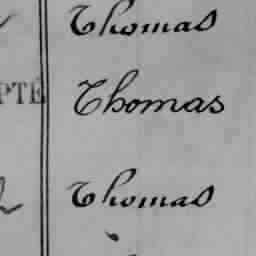 Thomas
PTÉ Thomas
Thomas